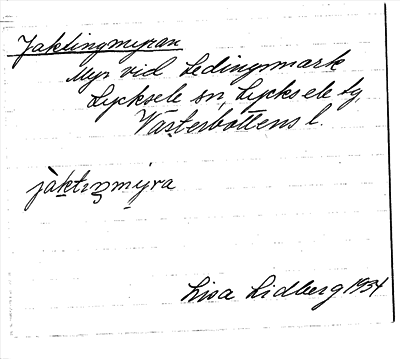 Jaktingmyran
Myr vid Ledingsmark
Lycksele sn, Lycksele lg,
Västerbottens l.
jàktiŋmýra
Lisa Lidberg 1934